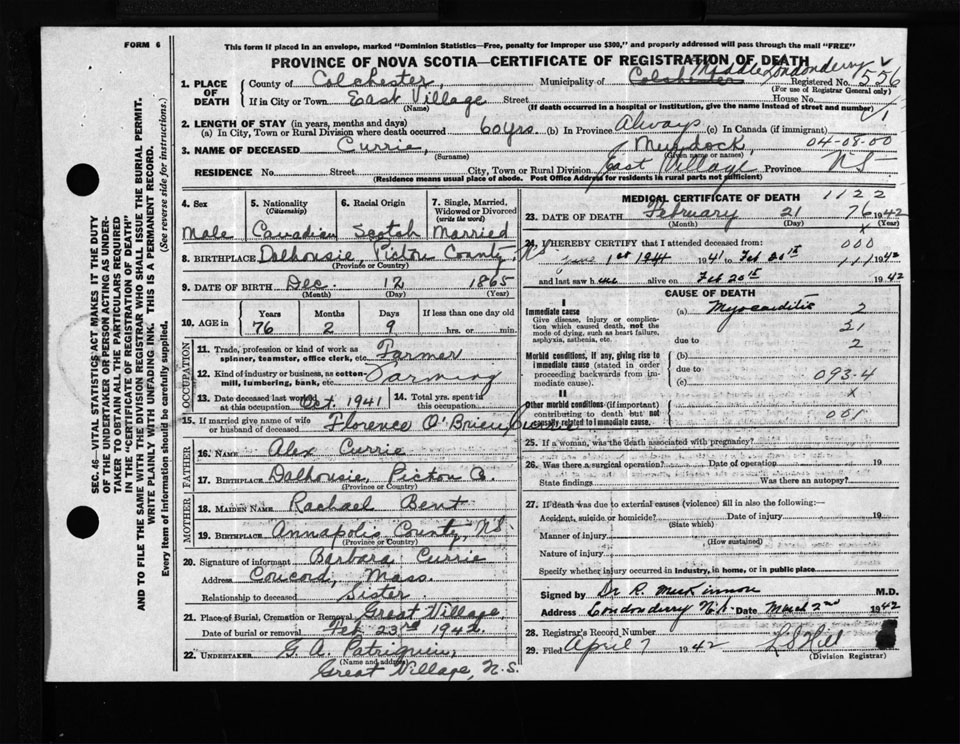 FORM 6
This form if placed in an envelope, marked "Dominion Statistics—Free, penalty for improper use $300," and properly addressed will pass through the mail "FREE"
PROVINCE OF NOVA SCOTIA—CERTIFICATE OF REGISTRATION OF DEATH
SEC. 46—VITAL STATISTICS ACT MAKES IT THE DUTY
OF THE UNDERTAKER OR PERSON ACTING AS UNDER-
TAKER TO OBTAIN ALL THE PARTICULARS REQUIRED
IN THE "CERTIFICATE OF REGISTRATION OF DEATH"
AND TO FILE THE SAME WITH THE DIVISION REGISTRAR WHO SHALL ISSUE THE BURIAL PERMIT.
WRITE PLAINLY WITH UNFADING INK. THIS IS A PERMANENT RECORD.
Every item of information should be carefully supplied. (See reverse side for instructions.)
1. PLACE OF DEATH
County of Colchester, Municipality of Colchester Middle Londonderry Registered No. 556
(For use of Registrar General only)
If in City or Town East Village Street House No.
(Name) (If death occurred in a hospital or institution, give the name instead of street and number)
2. LENGTH OF STAY (in years, months and days)
(a) In City, Town or Rural Division where death occurred 60 yrs. (b) In Province Always (c) In Canada (if immigrant)
3. NAME OF DECEASED Currie, Murdock, 04-08-00
(Surname) (Given name or names)
RESIDENCE No. Street City, Town or Rural Division East Village Province N.S.
(Residence means usual place of abode. Post Office Address for residents in rural parts not sufficient)
4. Sex
Male
5. Nationality
(Citizenship)
Canadian
6. Racial Origin
Scotch
7. Single, Married, Widowed or Divorced
(write the word)
Married
8. BIRTHPLACE Dalhousie, Pictou County, N.S.
(Province or County)
9. DATE OF BIRTH Dec. 12 1865
(Month) (Day) (Year)
10. AGE in
Years Months Days If less than one day old
76 2 9 hrs. or min.
OCCUPATION
11. Trade, profession or kind of work as
spinner, teamster, office clerk, etc. Farmer
12. Kind of industry or business, as cotton-
mill, lumbering, bank, etc. Farming
13. Date deceased last worked
at this occupation Oct. 1941
14. Total yrs. spent in
this occupation
15. If married give name of wife
or husband of deceased Florence O'Brien
FATHER
16. NAME Alex Currie
17. BIRTHPLACE Dalhousie, Pictou Co.
(Province or County)
MOTHER
18. MAIDEN NAME Rachael Bent
19. BIRTHPLACE Annapolis County, N.S.
(Province or County)
20. Signature of informant Barbara Currie
Address Concord, Mass.
Relationship to deceased Sister
21. Place of Burial, Cremation or Removal Great Village
Date of burial or removal Feb 23rd 1942.
22. UNDERTAKER G. A. Patriquin,
(Name and address)
Great Village, N.S.
MEDICAL CERTIFICATE OF DEATH 1122
23. DATE OF DEATH February 21 76 1942
(Month) (Day) (Year)
x
24. I HEREBY CERTIFY that I attended deceased from: 000
June 1st 1941 1941 to Feb 20th 111 1942
and last saw h alive on Feb 20th 1942
CAUSE OF DEATH
I
Immediate cause (a) Myocarditis 2
Give disease, injury or complica-
tion which caused death, not the 31
mode of dying, such as heart failure,
asphyxia, asthenia, etc. due to 2
Morbid conditions, if any, giving rise to (b)
immediate cause (stated in order due to
proceeding backwards from im-
mediate cause). (c) 093-4
II x
Other morbid conditions (if important)
contributing to death but not 001
causally related to immediate cause.
25. If a woman, was the death associated with pregnancy?
26. Was there a surgical operation? Date of operation 19
State findings Was there an autopsy?
27. If death was due to external causes (violence) fill in also the following:—
Accident, suicide or homicide? Date of injury 19
(State which)
Manner of injury
(How sustained)
Nature of injury
Specify whether injury occurred in industry, in home, or in public place
Signed by Dr R. McKinnon M.D.
Address Londonderry N.S. Date March 2nd 1942
28. Registrar's Record Number
29. Filed April 7 1942 Hill
(Division Registrar)